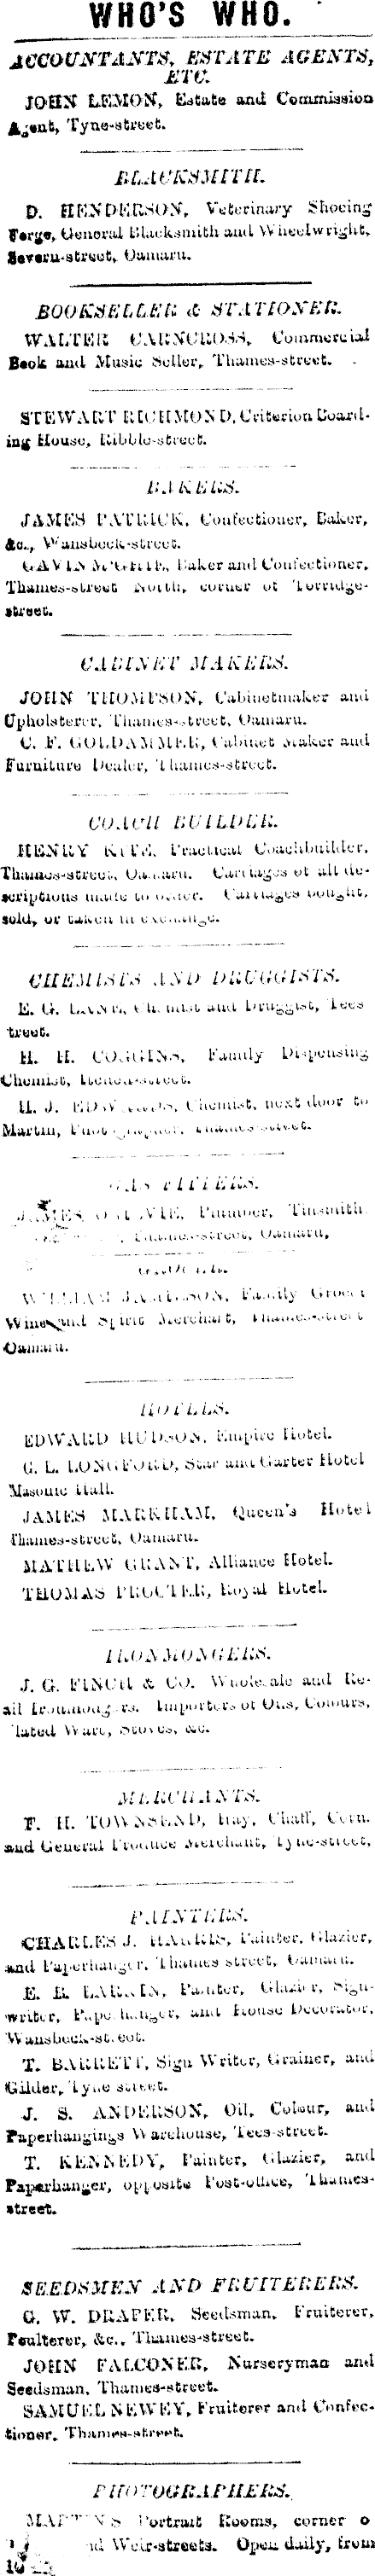 WHO'S WHO.
ACCOUNTANTS, ESTATE AGENTS,
ETC.
JOHN LEMON, Estate and Commission
Agent, Tyne-street.
BLACKSMITH.
D. HENDERSON, Veterinary Shoeing
Forge, General Blacksmith and Wheelwright,
Severn-street, Oamaru.
BOOKSELLER & STATIONER.
WALTER CARNCROSS, Commercial
Book and Music Seller, Thames-street.
STEWART RICHMOND, Criterion Board-
ing House, Ribble-street.
BAKERS.
JAMES PATRICK, Confectioner, Baker,
&c., Wansbeck-street.
GAVIN Baker and Confectioner,
Thames-street North, corner of Torridge-
street.
CABINET MAKERS.
JOHN THOMPSON, Cabinetmaker and
Upholsterer, Thames-street, Oamaru.
C. F. GOLDAMMER, Cabinet Maker and
Furniture Dealer, Thames-street.
COACH BUILDER.
HENRY KITE, Practical Coachbuilder,
Thames-street, Oamaru. Carriages of all de-
scriptions made to order. Carriages bought,
sold, or taken in exchange.
CHEMISTS AND DRUGGISTS.
E. G. Chemist and Druggist, Tees
treet.
H. H. Family Dispensing
Chemist, Itchen-street.
H. J. EDWARDS, Chemist, next door to
Martin, Photographer, Thames-street.
GAS FITTERS.
JAMES OGILVIE, Plumber, Tinsmith
Thames-street, Oamaru.
GROCER.
WILLIAM JAMIESON, Family Grocer
Wine and Spirit Merchant, Thames-street
Oamaru.
HOTELS.
EDWARD HUDSON, Empire Hotel.
G. L. LONGFORD, Star and Garter Hotel
Masonic Hall.
JAMES MARKHAM, Queen's Hotel
Thames-street, Oamaru.
MATHEW GRANT, Alliance Hotel.
THOMAS PROCTER, Royal Hotel.
IRONMONGERS.
J. G. FINCH & CO. Wholesale and Re-
ail Ironmongers. Importers of Oils, Colours,
lated Ware, Stoves, &c.
MERCHANTS.
F. H. TOWNSEND, Hay, Chaff, Corn.
and General Produce Merchant, Tyne-street.
PAINTERS.
CHARLES J. HARRIS, Painter, Glazier,
and Paperhanger, Thames street, Oamaru.
E. Painter, Glazier, Sign-
writer, Paperhanger, and House Decorator,
Wansbeck-street.
T. BARRETT, Sign Writer, Grainer, and
Gilder, Tyne street.
J. S. ANDERSON, Oil, Colour, and
Paperhangings Warehouse, Tees-street.
T. KENNEDY, Painter, Glazier, and
Paperhanger, opposite Post-office, Thames-
street.
SEEDSMEN AND FRUITERERS.
G. W. DRAPER, Seedsman, Fruiterer,
Poulterer, &c., Thames-street.
JOHN FALCONER, Nurseryman and
Seedsman, Thames-street.
SAMUEL NEWEY, Fruiterer and Confec-
tioner, Thames-street.
PHOTOGRAPHERS.
Portrait Rooms, corner o
Weir-streets. Open daily, from